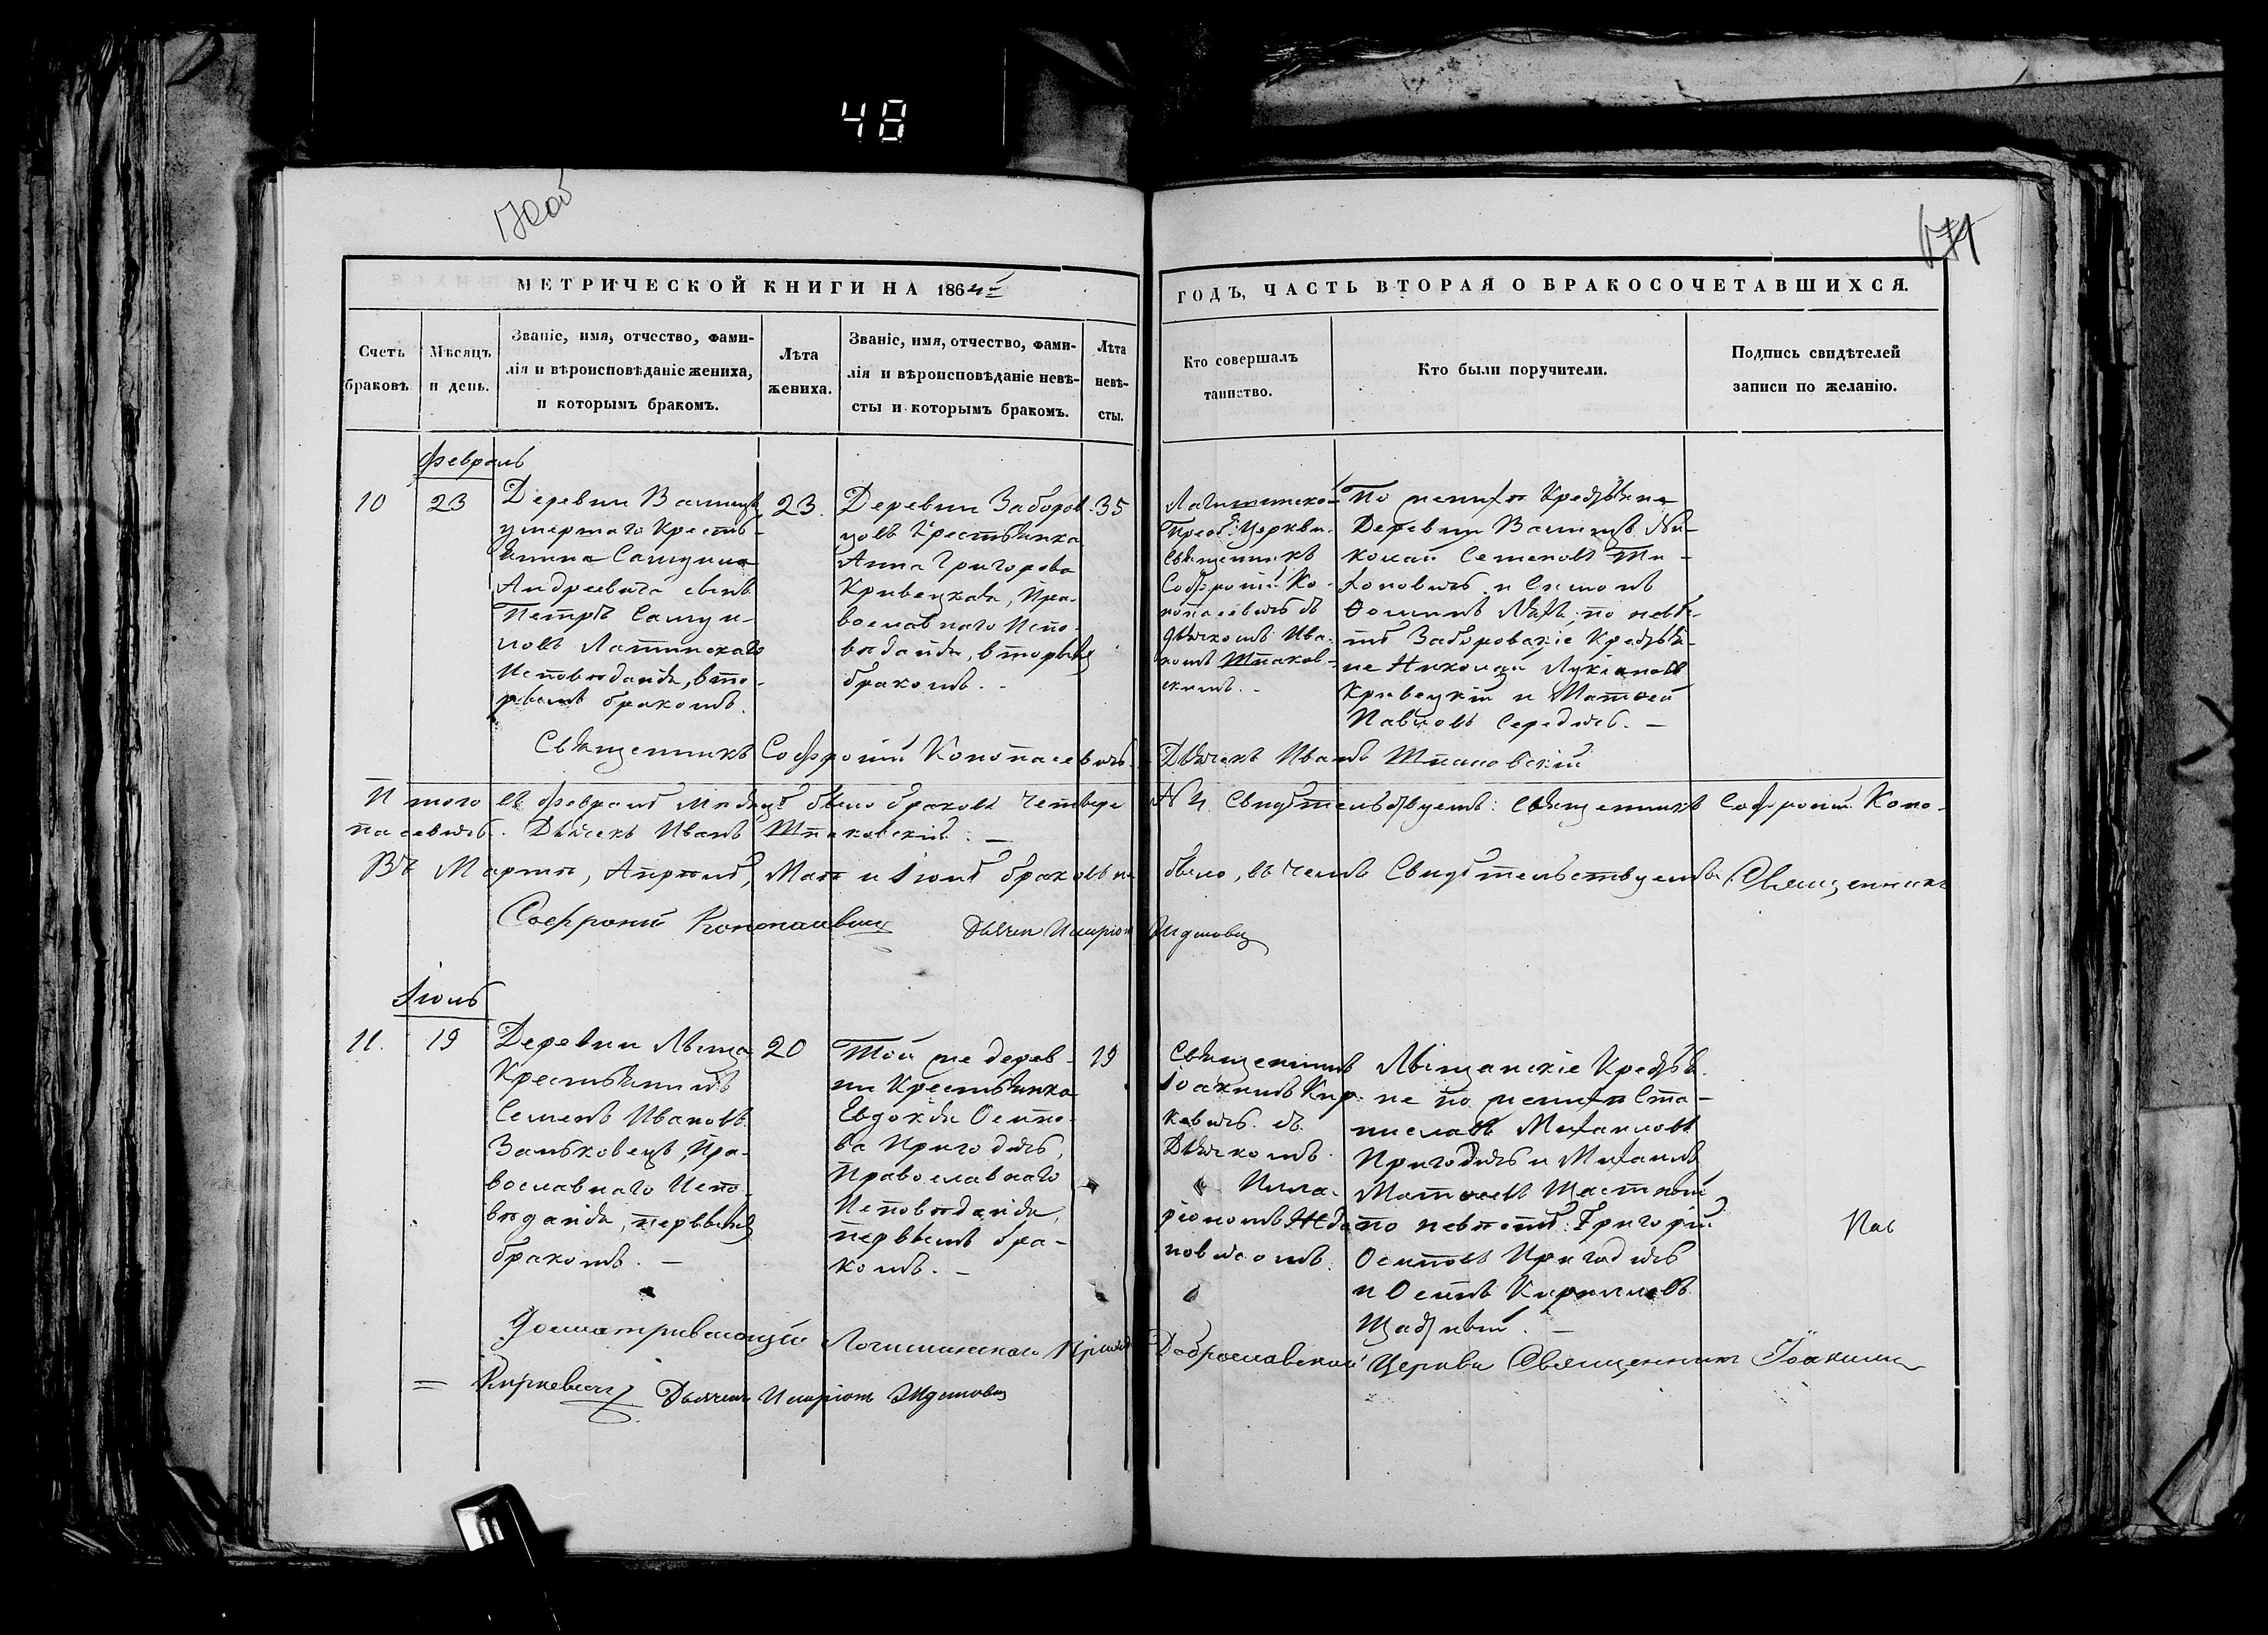 48
170об
171
МЕТРИЧЕСКОЙ КНИГИ НА 1864й
ГОДЪ, ЧАСТЬ ВТОРАЯ О БРАКОСОЧЕТАВШИХСЯ.
Счетъ
браковъ
Мѣсяцъ
и день.
Званіе, имя, отчество, фами-
лія и вѣроисповѣданіе жениха,
и которымъ бракомъ.
Лѣта
жениха.
Званіе, имя, отчество, фами-
лія и вѣроисповѣданіе невѣ-
сты и которымъ бракомъ.
Лѣта
невѣ-
сты.
Кто совершалъ
таинство.
Кто были поручители.
Подпись свидѣтелей
записи по желанію.
Февраль
10
23
Деревни
умершаго Кресть-
янина Самуила
Андреевича сынъ
Петръ Самуи-
ловъ Латинскаго
Исповѣданія, вто-
рымъ бракомъ.
23.
Деревни Заборов-
цовъ Крестьянка
Анна Григорова
Кривецкая, Пра-
вославнаго Испо-
вѣданія, вторымъ
бракомъ.
35
Логишинской
Преоб. Церкви
Священникъ
Софроній Ко-
нопасевичъ съ
дьячкомъ Ива-
номъ Шпаков-
скимъ.
По женихѣ Крестьяне
Деревни Ни-
колай Семеновъ Ти-
хоновичъ и Симонъ
Фоминъ по невѣ-
стѣ Заборовскіе Крестья-
не Николай Лукіановъ
Кривецкій и Матвей
Павловъ Середичъ. —
Священникъ Софроній Конопасевичъ. Дьячекъ Иванъ Шпаковскій
Итого въ Февралѣ Мѣсяцѣ было браковъ четверо №4 Свидѣтельствуетъ: Священникъ Софроній Коно-
пасевичъ. Дьячекъ Иванъ Шпаковскій. —
Въ Мартѣ, Апрѣлѣ, Маѣ и Іюнѣ браковъ не было, въ чемъ Свидѣтельствуетъ Священникъ
Софроній Конопасевичъ Дьячекъ Иларіонъ Ждановичъ
Іюль
11.
19
Деревни Лыща
Крестьянинъ
Семенъ Ивановъ
Заньковецъ, Пра-
вославнаго Испо-
вѣданія, первымъ
бракомъ. —
20
Той же дерев-
ни Крестьянка
Евдокія Осипо-
ва Пригодичъ,
Православнаго
Исповѣданія,
первымъ бра-
комъ. —
19
Священникъ
Іоакимъ Кир-
кевичъ съ
Дьячкомъ
Ила-
ріономъ Жда-
новичомъ.
Лыщанскіе Крестья-
не по женихѣ Ста-
ниславъ Михаиловъ
Пригодичъ и Михаилъ
Матвеевъ Щастный
по невѣстѣ: Григорій
Осиповъ Пригодичъ
и Осипъ Кирилловъ
Щастный. —
Досматривающій Логишинскаго Прихода Доброславской Церкви Священникъ Іоакимъ
= Киркевичъ Дьячекъ Иларіонъ Ждановичъ